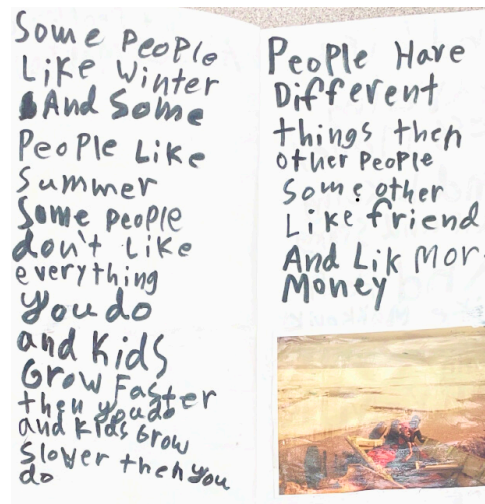 Some PeoPle
Like winter
And Some
PeoPle Like
Summer
Some people
don't Like
everything
you do
and kids
Grow Faster
then you do
and kids Grow
Slover then you
do
PeoPle Have
Different
things then
other PeoPle
Some other
Like friend
And Lik Mor
Money